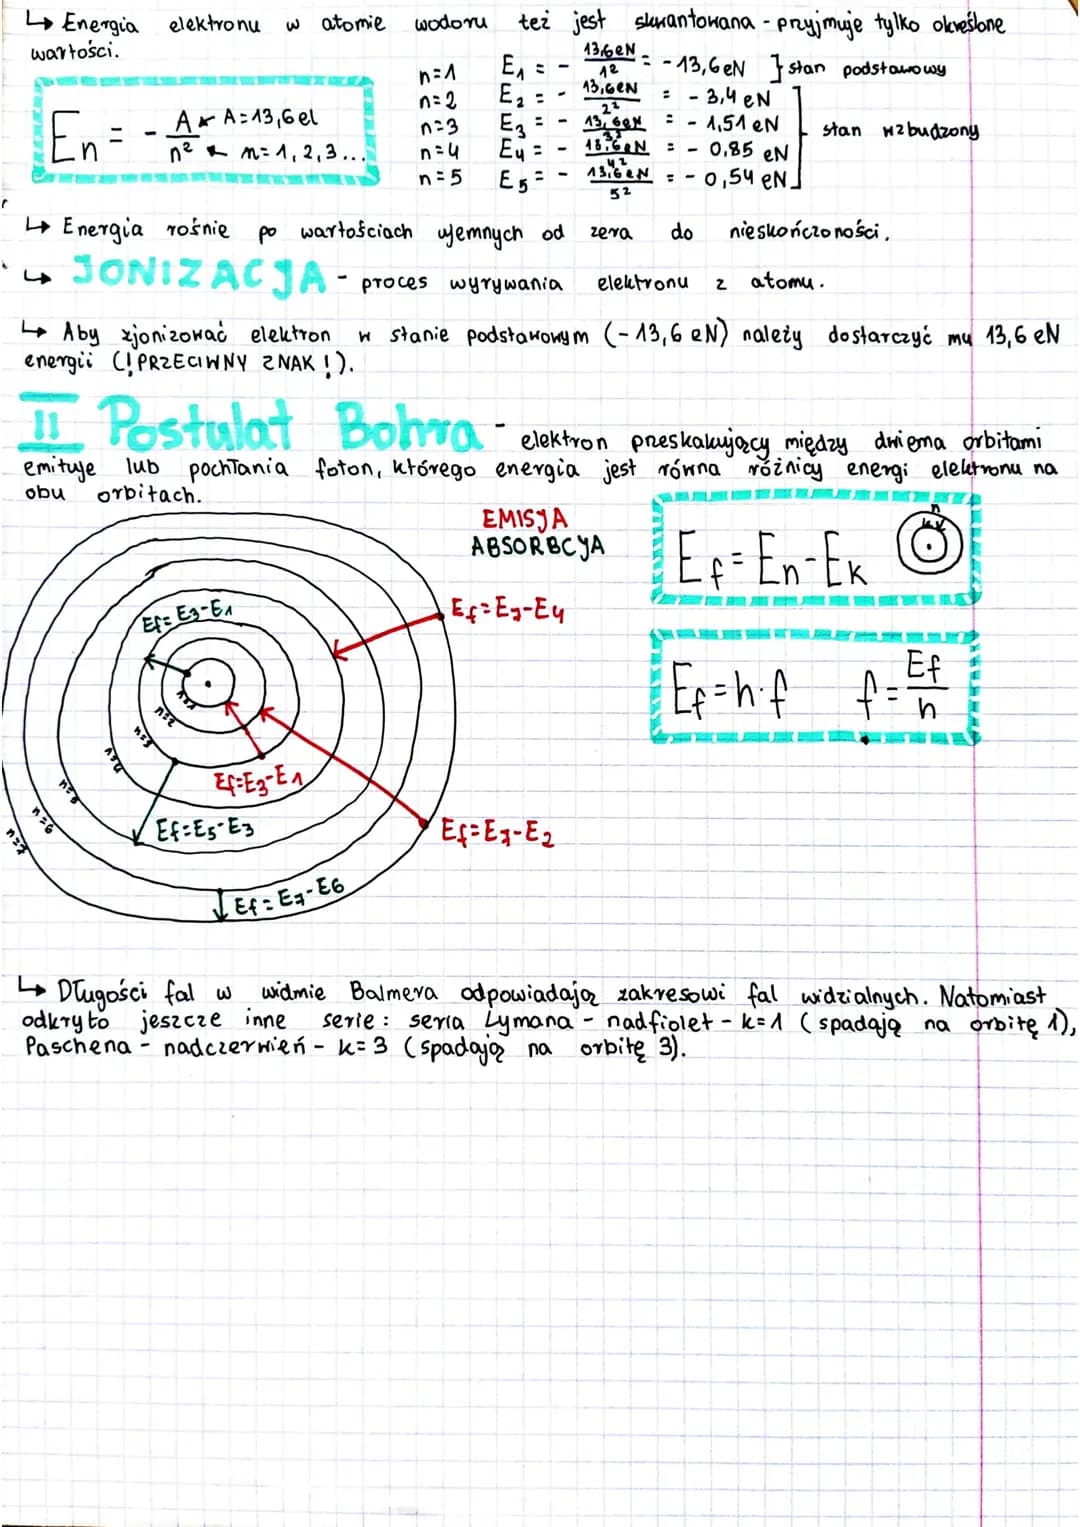 ↳ Energia elektronu w atomie wodoru też jest skwantowana - przyjmuje tylko określone
wartości.
En = - A/n² A=13,6 eV n=1,2,3...
n=1 E₁ = - 13,6eV/1² = -13,6eV } stan podstawowy
n=2 E₂ = - 13,6eV/2² = - 3,4 eV
n=3 E₃ = - 13,6eV/3² = - 1,51 eV
n=4 E₄ = - 13,6eV/4² = - 0,85 eV
n=5 E₅ = - 13,6eV/5² = - 0,54 eV
stan wzbudzony
↳ Energia rośnie po wartościach ujemnych od zera do nieskończoności.
↳ JONIZACJA - proces wyrywania elektronu z atomu.
↳ Aby zjonizować elektron w stanie podstawowym (-13,6 eV) należy dostarczyć mu 13,6 eV
energii (!PRZECIWNY ZNAK!).
II Postulat Bohra - elektron przeskakujący między dwiema orbitami
emituje lub pochłania foton, którego energia jest równa różnicy energi elektronu na
obu orbitach.
EMISJA
ABSORBCYA
Ef = En - Ek
n
k
Ef = E3 - E1
Ef = E7 - E4
Ef = h·f f = Ef/h
n=1
n=2
n=3
n=4
n=5
n=6
n=7
Ef = E3 - E1
Ef = E5 - E3
Ef = E7 - E2
Ef = E7 - E6
↳ Długości fal w widmie Balmera odpowiadają zakresowi fal widzialnych. Natomiast
odkryto jeszcze inne serie: seria Lymana - nadfiolet - k=1 (spadają na orbitę 1),
Paschena - nadczerwień - k=3 (spadają na orbitę 3).